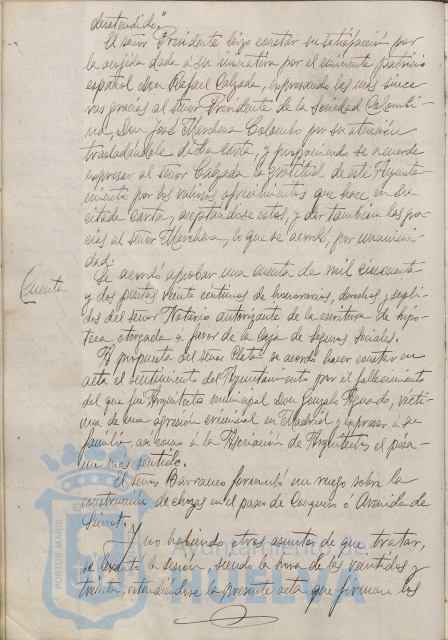 desatendido."
El señor Presidente hizo constar su satisfacción por
la acojida dada a su iniciativa por el eminente patricio
español Don Rafael Calzada, expresando las más since
ras gracias al señor Presidente de la Sociedad Colombi
na, Don José Marchena Colombo por su atención
trasladándole dicha carta, y proponiendo se acuerde
expresar al señor Calzada la gratitud de este Ayunta-
miento por los valiosos ofrecimientos que hace en su
citada carta, aceptándose estos, y dar también las gra-
cias al señor Marchena, lo que se acordó, por unanimi-
dad.
Cuenta
Se acordó aprobar una cuenta de mil cincuenta
y dos pesetas veinte céntimos de honorarios, derechos y supli-
dos del señor Notario autorizante de la escritura de hipo-
teca otorgada a favor de la Caja de Seguros Sociales.
A propuesta del señor Plata se acordó hacer constar en
acta el sentimiento del Ayuntamiento por el fallecimiento
del que fué Arquitecto municipal Don Gonzalo Aguado, vícti-
ma de una agresión criminal en Madrid, y expresar a su
familia, así como a la Asociación de Arquitectos el pésa-
me más sentido.
El señor Barranco formuló un ruego sobre la
construcción de chozas en el paseo de Conquero ó Avenida de
Y no habiendo otros asuntos de que tratar,
se levantó la sesión, siendo la hora de las veintidós y
treinta, extendiéndose la presente acta que firman los
Ayuntamiento de
HUELVA
PORTUS MARIS